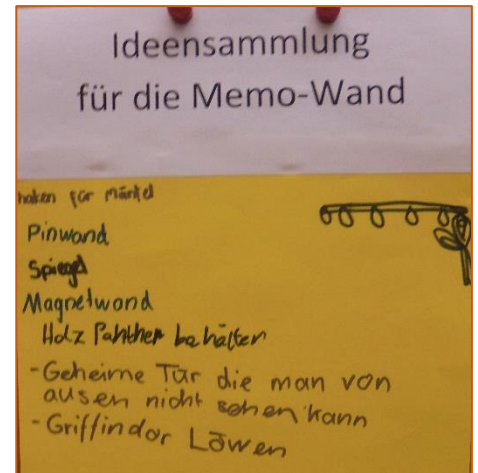 Ideensammlung
für die Memo-Wand
haken für Mäntel
Pinwand
Spiegel
Magnetwand
Holz Panther behälter
-Geheime Tür die man von
ausen nicht sehen kann
-Griffindor Löwen